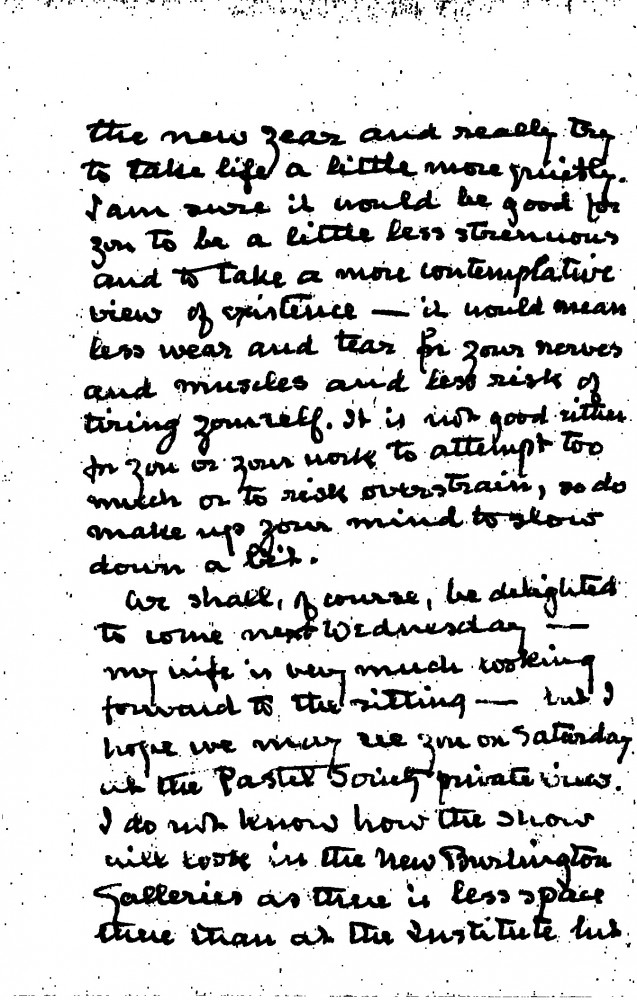 the new year and really try
to take life a little more quietly.
I am sure it would be good for
you to be a little less strenuous
and to take a more contemplative
view of existence — it would mean
less wear and tear for your nerves
and muscles and less risk of
tiring yourself. It is not good either
for you or your work to attempt too
much or to risk overstrain, so do
make up your mind to slow
down a bit.
We shall, of course, be delighted
to come next Wednesday —
my wife is very much looking
forward to the sitting — but I
hope we may see you on Saturday
at the Pastel Society private view.
I do not know how the show
will look in the New Burlington
Galleries as there is less space
there than at the Institute but